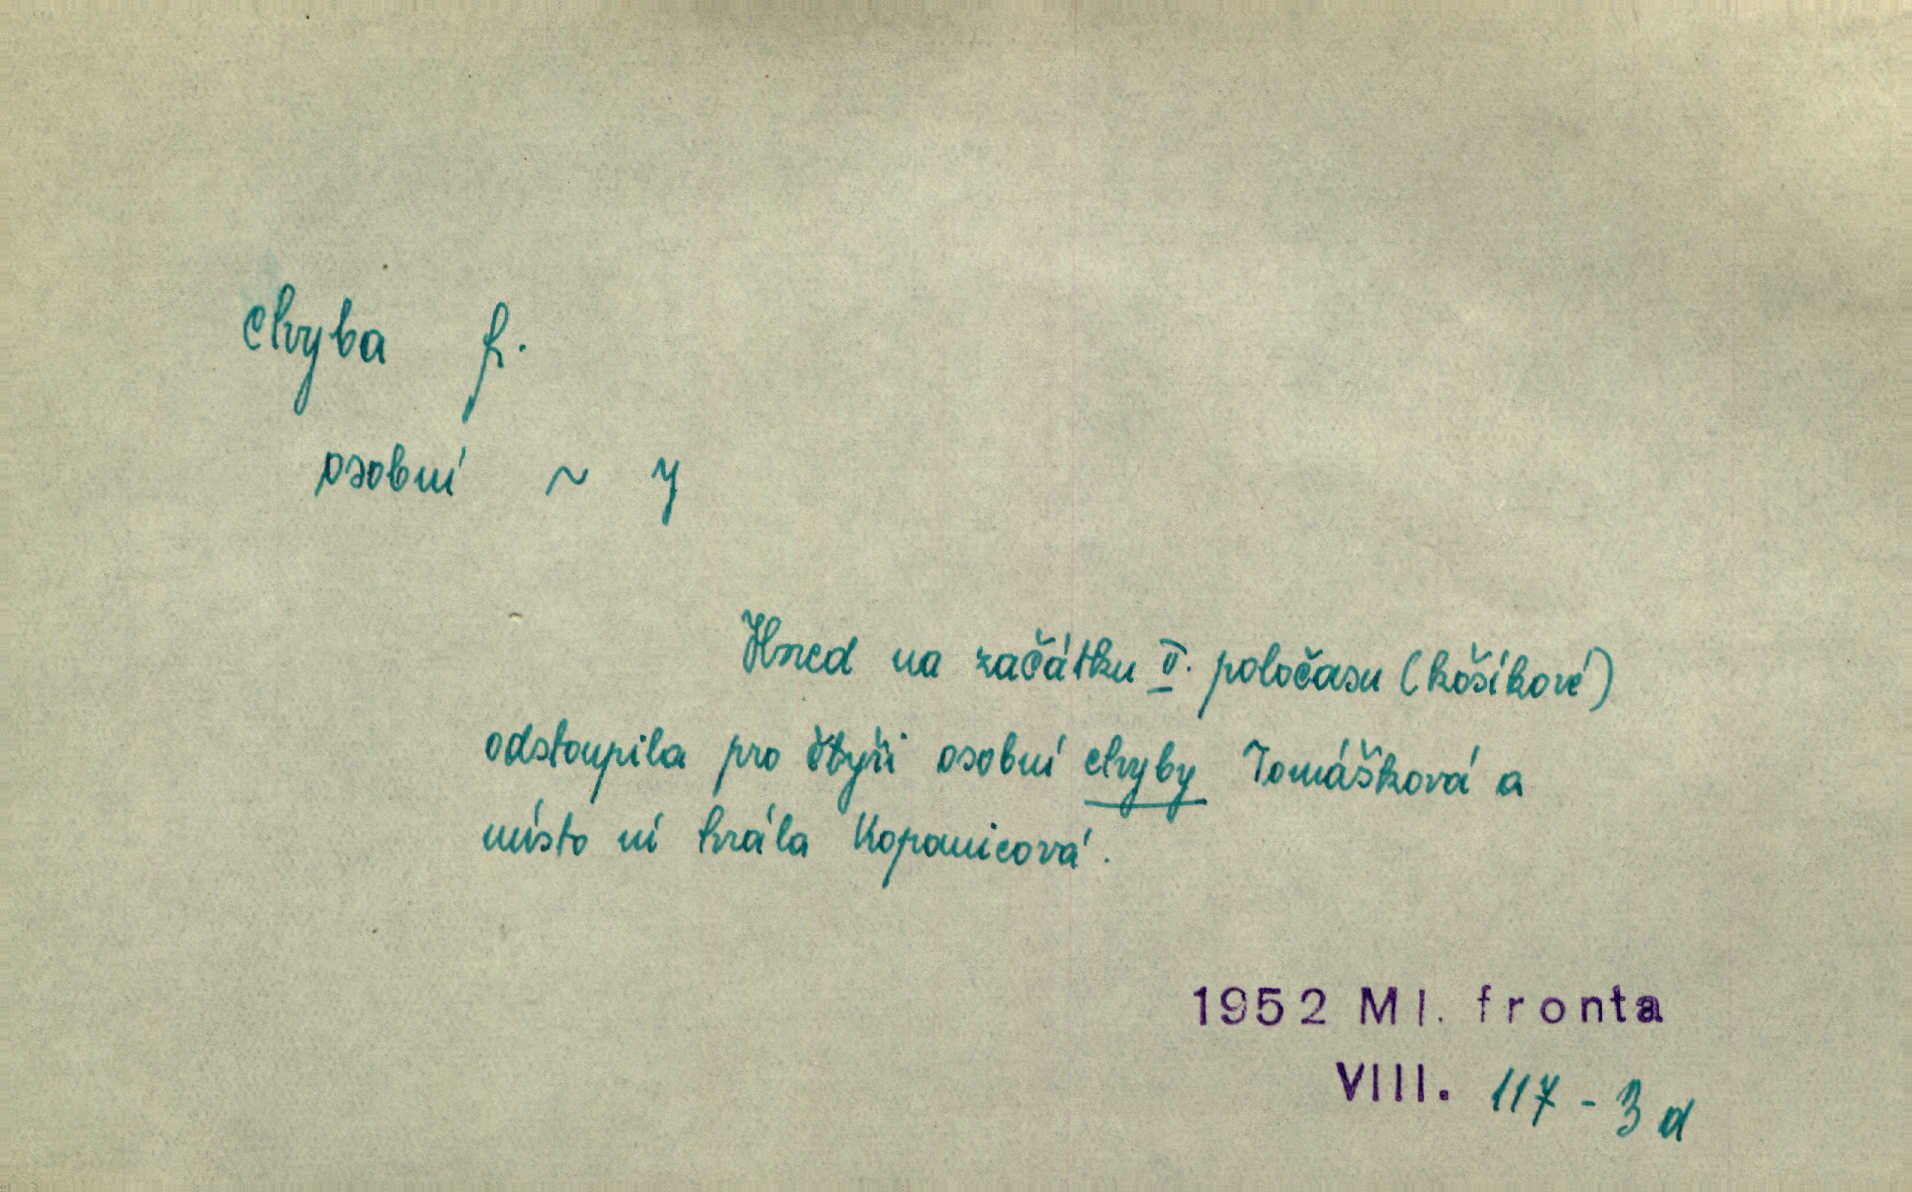 chyba f.
osobní ~ y
Hned na začátku II. poločasu (košíkové)
odstoupila pro čtyři osobní chyby Tomášková a
místo ní hrála Kopanicová.
1952 Ml. fronta
VIII. 117 - 3 d